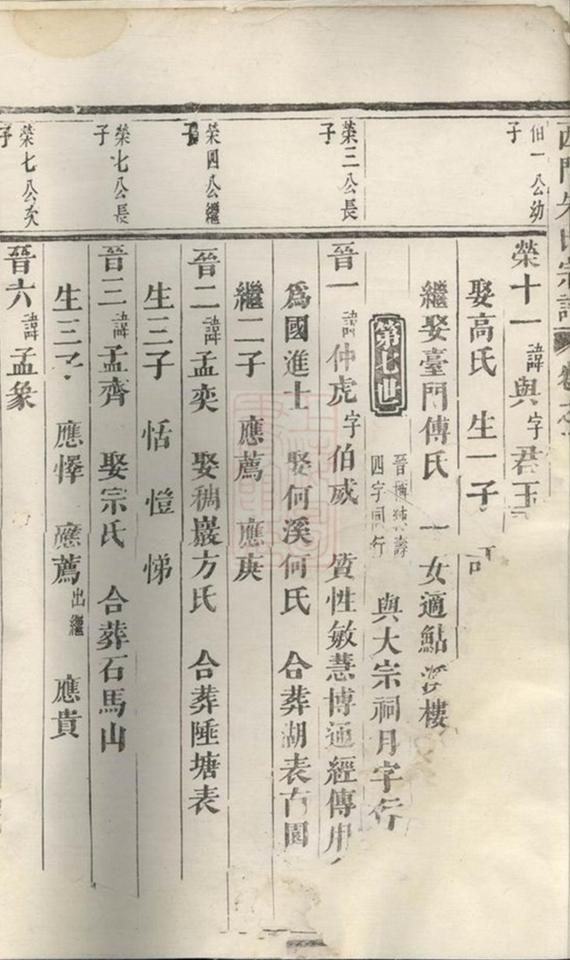 西門朱氏宗譜 卷之
伯一公幼子
榮十一 諱與 字君玉
娶高氏 生一子
繼娶臺門傅氏 一女適鮎溪樓
第七世
四字同行
與大宗祠月字行
榮三公長子
晉一 諱仲虎 字伯威 質性敏慧博通經傳用
爲國進士 娶何溪何氏 合葬湖表古園
繼二子 應薦 應庚
榮四公繼子
晉二 諱孟奕 娶稠巖方氏 合葬陲塘表
生三子 恬 愷 悌
榮七公長子
晉三 諱孟齊 娶宗氏 合葬石馬山
生三子 應懌 應薦 出繼 應貴
榮七公次子
晉六 諱孟象